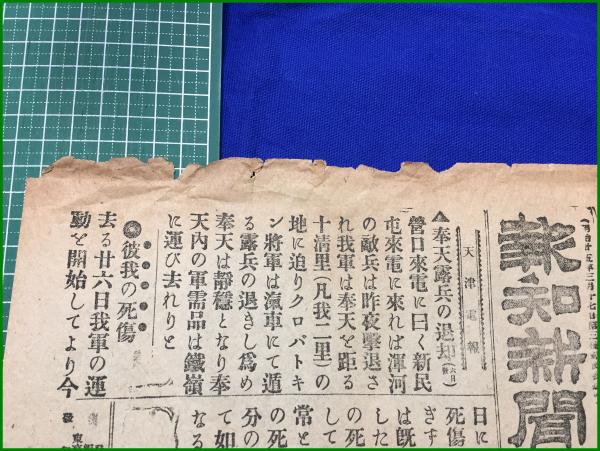 報知新聞
天津電報
▲奉天露兵の退却
營口來電に曰く新民
屯來電に來れば渾河
の敵兵は昨夜擊退さ
れ我軍は奉天を距る
十清里(凡我二里)の
地に迫りクロパトキ
ン將軍は滊車にて遁
る露兵の退きし爲め
奉天は靜穩となり奉
天內の軍需品は鐵嶺
に運び去れりと
◉彼我の死傷
去る廿六日我軍の運
動を開始してより今
日に
死傷
きす
は旣
した
の死
して
常と
の死
分の
て如
なる